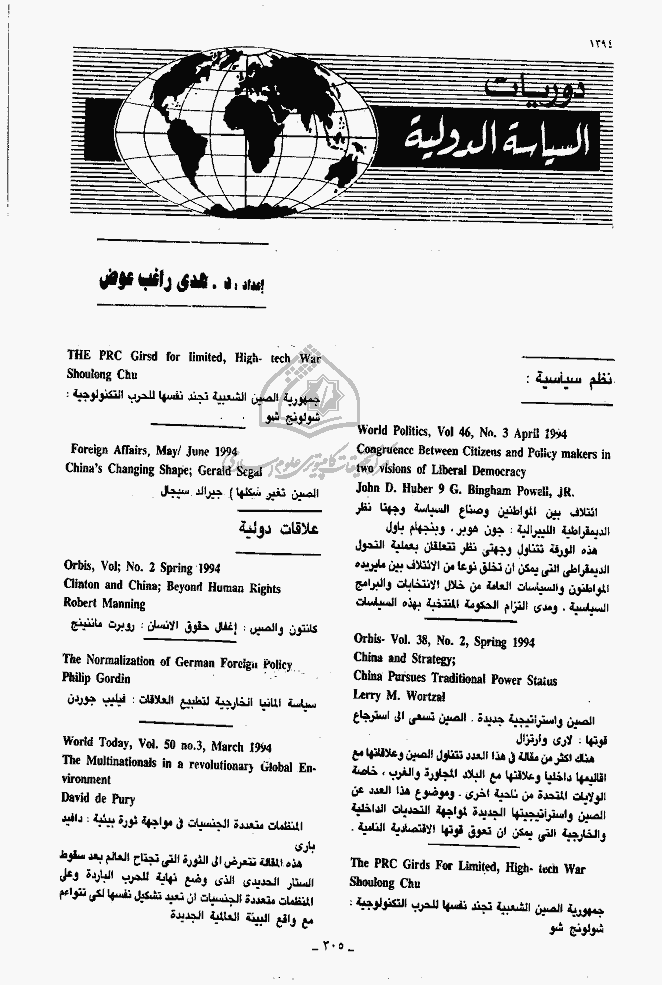 ١٣٩٤
دوريات
السياسة الدولية
إعداد : د . هدى راغب عوض
نظم سياسية :
World Politics, Vol 46, No. 3 April 1994
Congruence Between Citizens and Policy makers in
two visions of Liberal Democracy
John D. Huber 9 G. Bingham Powell, JR.
ائتلاف بين المواطنين وصناع السياسة وجهتا نظر
الديمقراطية الليبرالية : جون هوبر ، وبنجهام باول
هذه الورقة تتناول وجهتى نظر تتعلقان بعملية التحول
الديمقراطى التى يمكن ان تخلق نوعا من الائتلاف بين مايريده
المواطنون والسياسات العامة من خلال الانتخابات والبرامج
السياسية ، ومدى التزام الحكومة المنتخبة بهذه السياسات
Orbis- Vol. 38, No. 2, Spring 1994
China and Strategy;
China Pursues Traditional Power Status
Lerry M. Wortzal
الصين واستراتيجية جديدة . الصين تسعى الى استرجاع
قوتها : لارى وارتزال
هناك اكثر من مقالة فى هذا العدد تتناول الصين وعلاقاتها مع
اقاليمها داخليا وعلاقتها مع البلاد المجاورة والغرب ، خاصة
الولايات المتحدة من ناحية اخرى . وموضوع هذا العدد عن
الصين واستراتيجيتها الجديدة لمواجهة التحديات الداخلية
والخارجية التى يمكن ان تعوق قوتها الاقتصادية النامية .
The PRC Girds For Limited, High- tech War
Shoulong Chu
جمهورية الصين الشعبية تجند نفسها للحرب التكنولوجية :
شولونج شو
THE PRC Girsd for limited, High- tech War
Shoulong Chu
جمهورية الصين الشعبية تجند نفسها للحرب التكنولوجية :
شولونج شو
Foreign Affairs, May/ June 1994
China's Changing Shape; Gerald Segal
الصين تغير شكلها ) جيرالد سيجال
علاقات دولية
Orbis, Vol; No. 2 Spring 1994
Clinton and China; Beyond Human Rights
Robert Manning
كلنتون والصين : إغفال حقوق الانسان : روبرت ماننينج
The Normalization of German Foreign Policy
Philip Gordin
سياسة المانيا الخارجية لتطبيع العلاقات : فيليب جوردن
World Today, Vol. 50 no.3, March 1994
The Multinationals in a revolutionary Global En-
vironment
David de Pury
المنظمات متعددة الجنسيات فى مواجهة ثورة بيئية : دافيد
بارى
هذه المقالة تتعرض الى الثورة التى تجتاح العالم بعد سقوط
الستار الحديدى الذى وضع نهاية للحرب الباردة وعلى
المنظمات متعددة الجنسيات ان تعيد تشكيل نفسها لكى تتواءم
مع واقع البيئة العالمية الجديدة
_ ٣٠٥ _